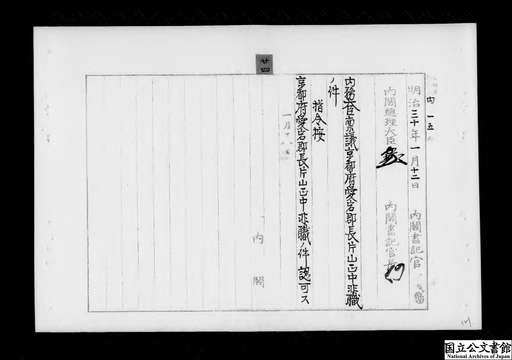 廿四
内一五
明治三十年一月十二日
内閣書記官
内閣總理大臣
内閣書記官長
内務省稟議京都府愛宕郡長片山正中非職
ノ件
指令按
京都府愛宕郡長片山正中非職ノ件認可ス
一月十八日
内閣
国立公文書館
National Archives of Japan